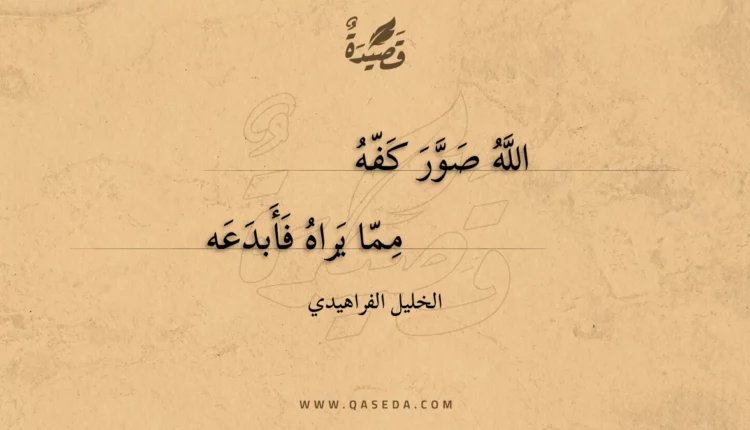 قَصِيدَةٌ
اللَّهُ صَوَّرَ كَفّهُ
مِمّا يَراهُ فَأَبدَعَه
الخليل الفراهيدي
WWW.QASEDA.COM